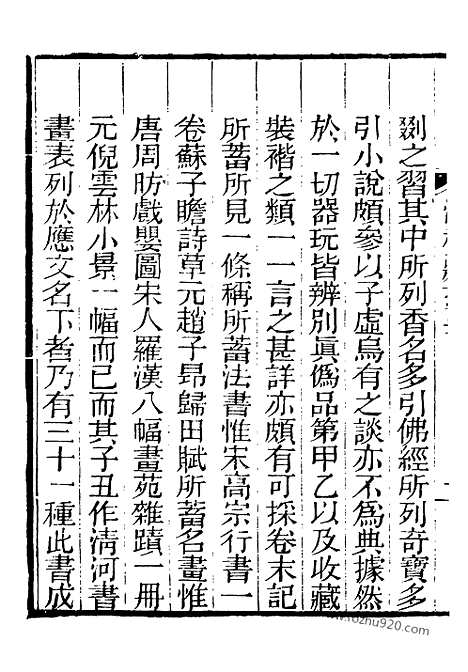 剟之習其中所列香名多引佛經所列奇寶多
引小說頗參以子虛烏有之談亦不爲典據然
於一切器玩皆辨別眞僞品第甲乙以及收藏
裝褙之類一一言之甚詳亦頗有可採卷末記
所蓄所見一條稱所蓄法書惟宋高宗行書一
卷蘇子瞻詩草元趙子昂歸田賦所蓄名畫惟
唐周昉戲嬰圖宋人羅漢八幅畫苑雜蹟一冊
元倪雲林小景一幅而已而其子丑作淸河書
畫表列於應文名下者乃有三十一種此書成
www.fozhu920.com